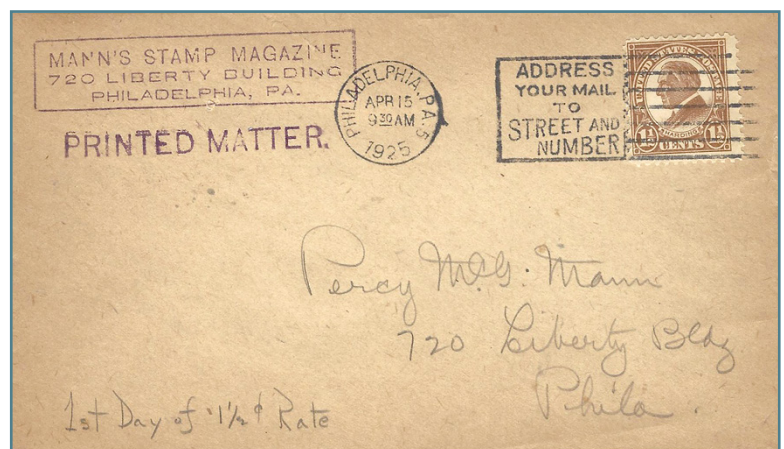 MANN'S STAMP MAGAZINE
720 LIBERTY BUILDING
PHILADELPHIA, PA.
PRINTED MATTER.
PHILADELPHIA, PA. 5
APR 15
9 30 AM
1925
ADDRESS
YOUR MAIL
TO
STREET AND
NUMBER
UNITED STATES POSTAGE
HARDING
1½ CENTS 1½
Percy McG. Mann
720 Liberty Bldg
Phila.
1st Day of 1½¢ Rate